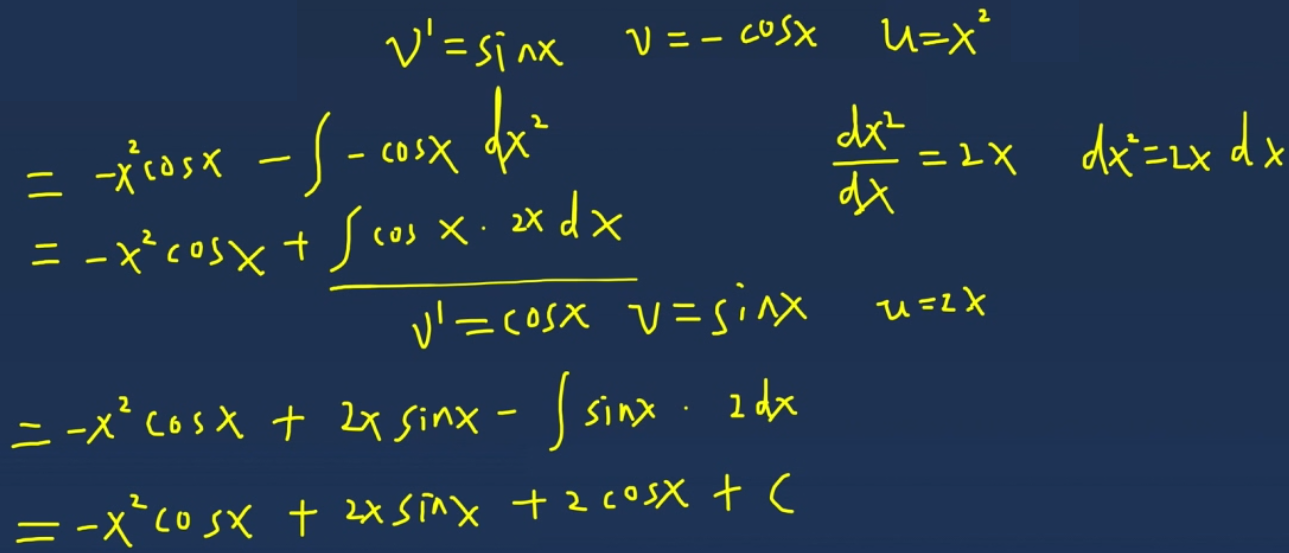 v'=sinx v=-cosx u=x²
= -x²cosx - ∫-cosx dx² dx²/dx=2x dx²=2x dx
= -x²cosx + ∫cos x · 2x dx
v'=cosx v=sinx u=2x
= -x²cosx + 2x sinx - ∫sinx · 2dx
= -x²cosx + 2x sinx + 2cosx + C